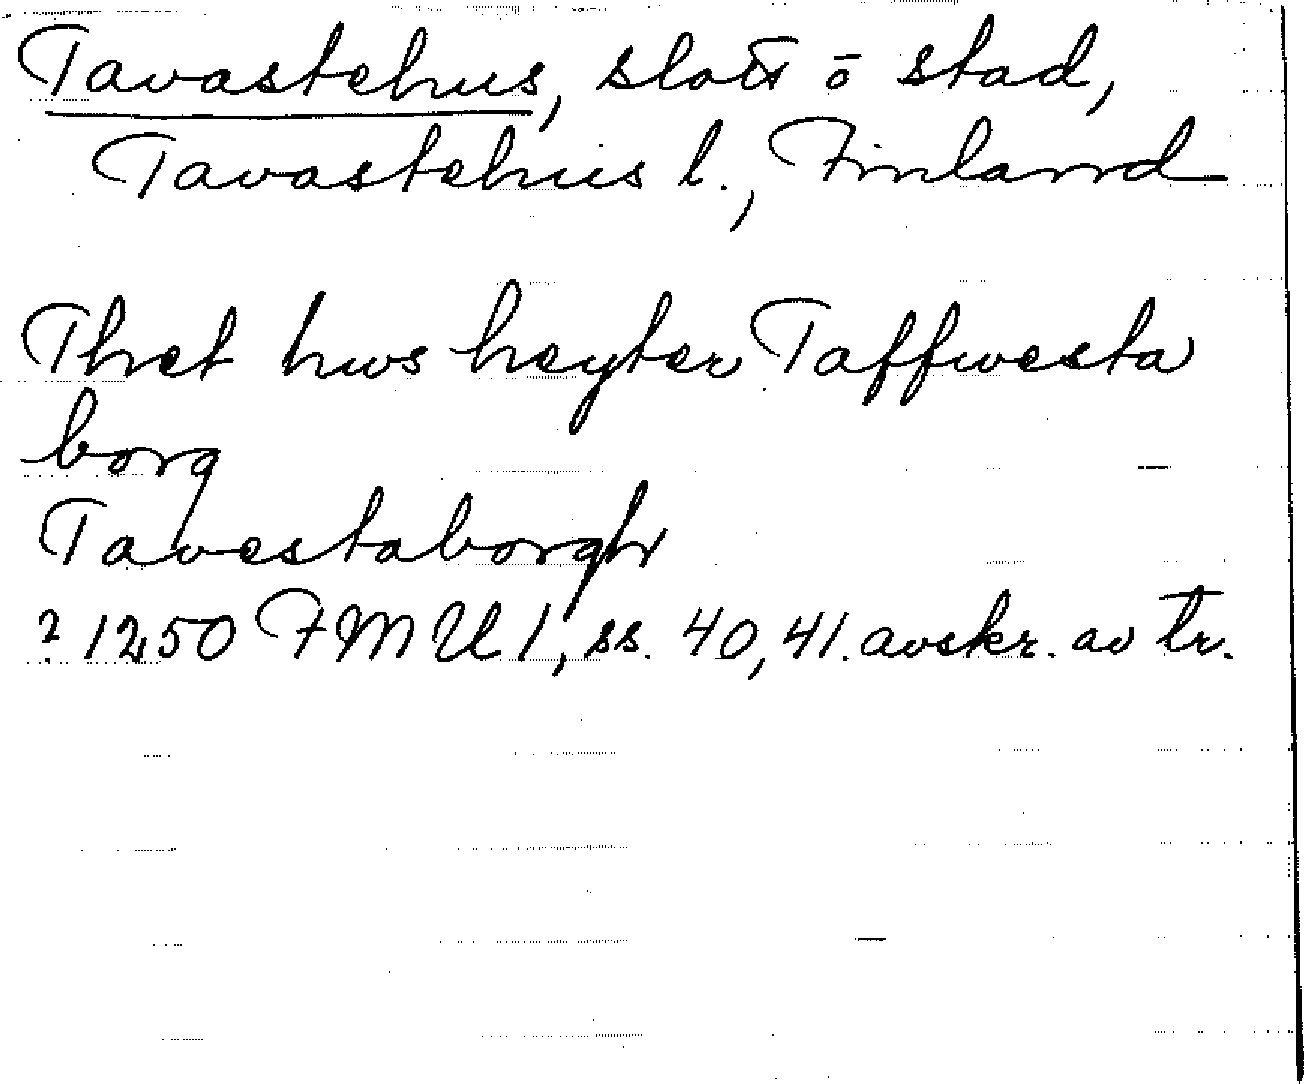 Tavastehus, slott o stad,
Tavastehus l., Finland
Thet hws heyter Taffwesta
borg
Tavestaborgh
? 1250 FMU 1, ss. 40, 41. avskr. av tr.